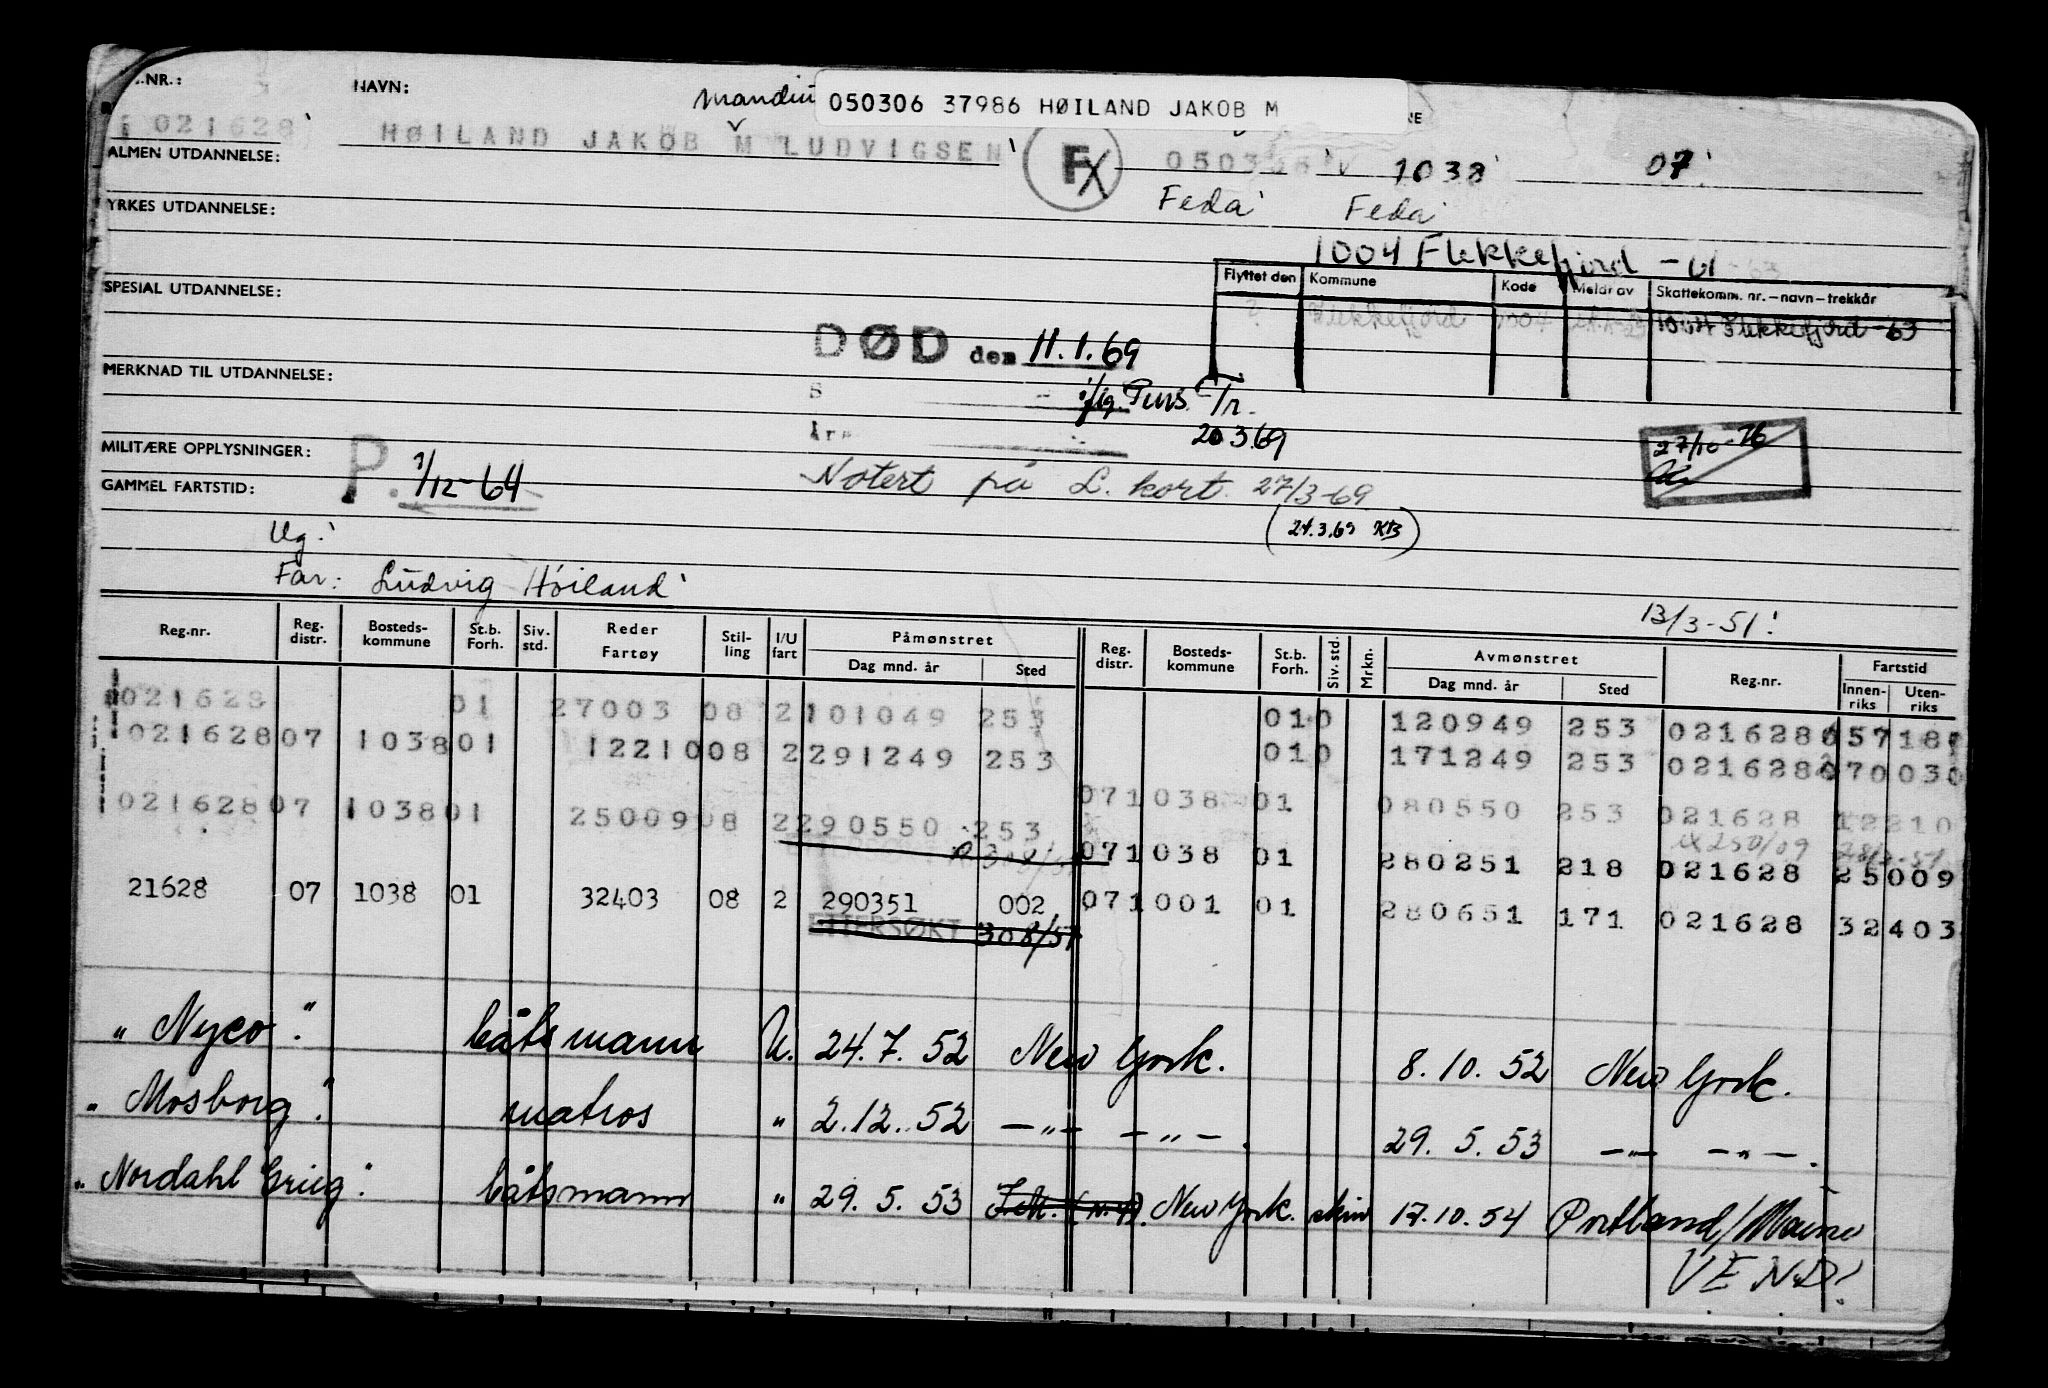 .NR.: NAVN: 050306 37986 HØILAND JAKOB M
021628 HØILAND JAKOB M LUDVIGSEN FX 1038 07
ALMEN UTDANNELSE:
Feda Feda
YRKES UTDANNELSE:
1004 Flekkefjord - 61 - 63
Flyttet den Kommune Kode Meldt av Skattekomm. nr. – navn – trekkår
SPESIAL UTDANNELSE:
Flekkefjord 1004 1004 Flekkefjord - 63
DØD den 11.1.69
MERKNAD TIL UTDANNELSE:
20.3.69
27/10-76
MILITÆRE OPPLYSNINGER:
P. 1/12-64
Notert på L. kort. 27/3-69
GAMMEL FARTSTID:
(24.3.69 KB)
Ug.
Far: Ludvig Höiland
13/3-51!
Reg.nr. Reg. distr. Bosteds-kommune St.b. Forh. Siv. std. Reder Fartøy Stil-ling I/U fart Påmønstret Dag mnd. år Sted Reg. distr. Bosteds-kommune St.b. Forh. Siv. std. Mrkn. Avmønstret Dag mnd. år Sted Reg.nr. Fartstid Innen-riks Uten-riks
021628 01 27003 08 2 101049 253 010 120949 253 021628
021628 07 1038 01 12210 08 2 291249 253 010 171249 253 021628
021628 07 1038 01 25009 08 2 290550 253 07 1038 01 080550 253 021628 12210
07 1038 01 280251 218 021628 25009
21628 07 1038 01 32403 08 2 290351 002 07 1001 01 280651 171 021628 32403
ETTERSØKT 30 8/51
"Nyco". båtsmann U. 24.7.52 New York. 8.10.52 New York.
"Mosborg". matros " 2.12.52 – " – – " –. 29.5.53 – " – – " –.
"Nordahl Grieg". båtsmann " 29.5.53 New York. 17.10.54 Portland/Maine
VEND!